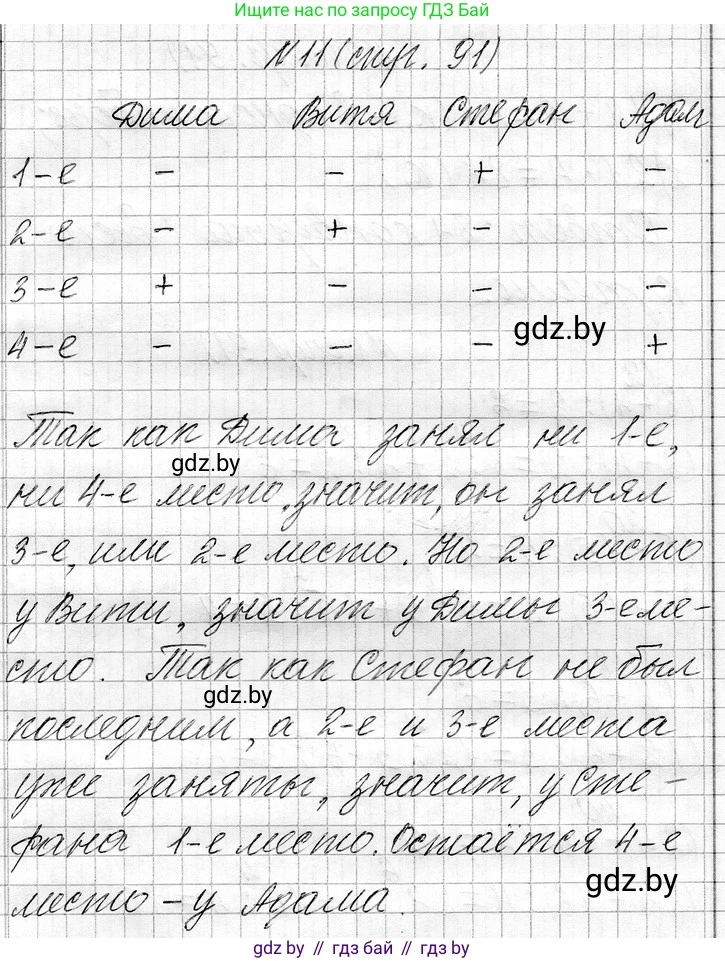 Ищите нас по запросу ГДЗ Бай
N 11 (стр. 91)
Дима Витя Стефан Адам
1-е - - + -
2-е - + - -
3-е + - - -
gdz.by
4-е - - - +
Так как Дима занял ни 1-е,
gdz.by
ни 4-е место, значит, он занял
3-е, или 2-е место. Но 2-е место
у Вити, значит у Димы 3-е ме-
сто. Так как Стефан не был
gdz.by
последним, а 2-е и 3-е места
уже заняты, значит, у Сте-
фана 1-е место. Остаётся 4-е
gdz.by
место - у Адама.
gdz by // гдз бай // gdz by